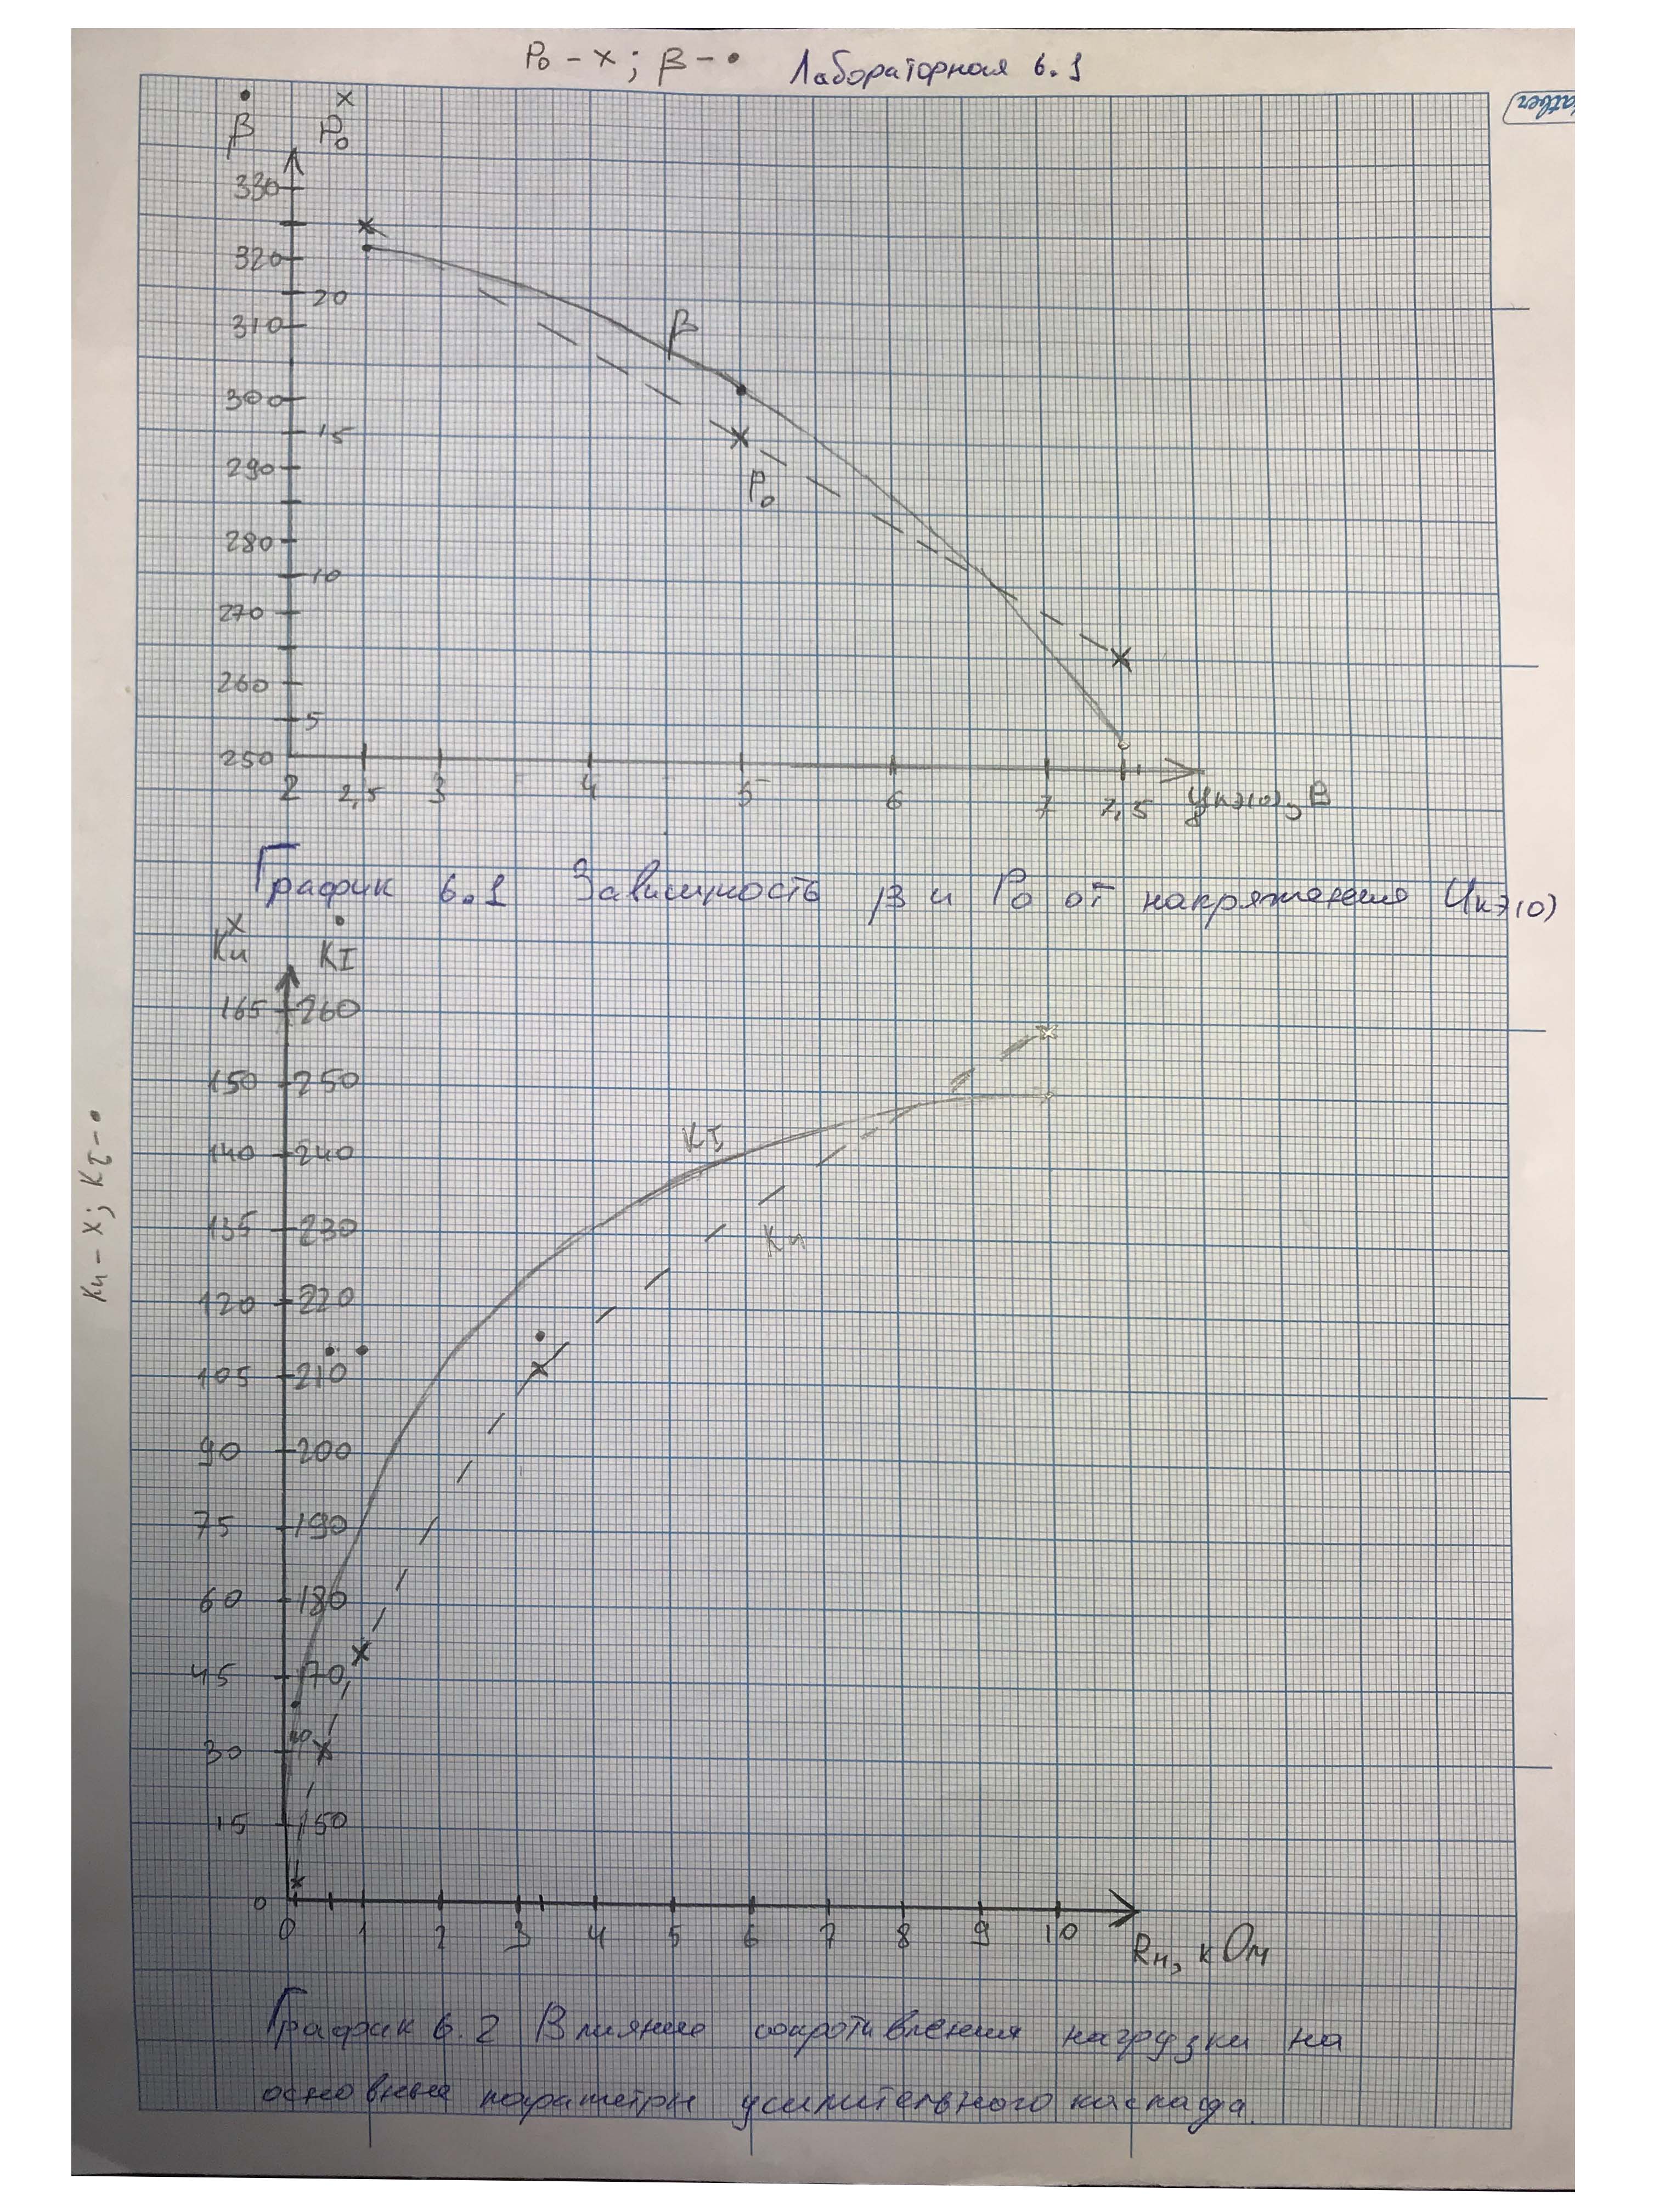 P₀ - x ; β - • Лабораторная 6.1
β P₀
330
320
20
310
300
15
290
280
10
270
260
5
250
β
P₀
2 2,5 3 4 5 6 7 7,5 8 Uкэ(0), В
График 6.1 Зависимость β и P₀ от напряжения Uкэ(0)
Kи KI
165 260
150 250
140 240
135 230
120 220
105 210
90 200
75 190
60 180
45 170
30
15 150
0
KI
Kи
Kи - x ; KI - •
0 1 2 3 4 5 6 7 8 9 10
Rн, кОм
График 6.2 Влияние сопротивления нагрузки на
основные параметры усилительного каскада.